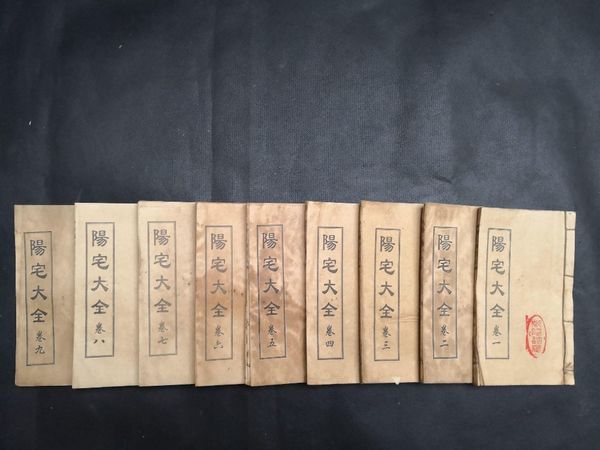 陽宅大全 卷一
陽宅大全 卷二
陽宅大全 卷三
陽宅大全 卷四
陽宅大全 卷五
陽宅大全 卷六
陽宅大全 卷七
陽宅大全 卷八
陽宅大全 卷九